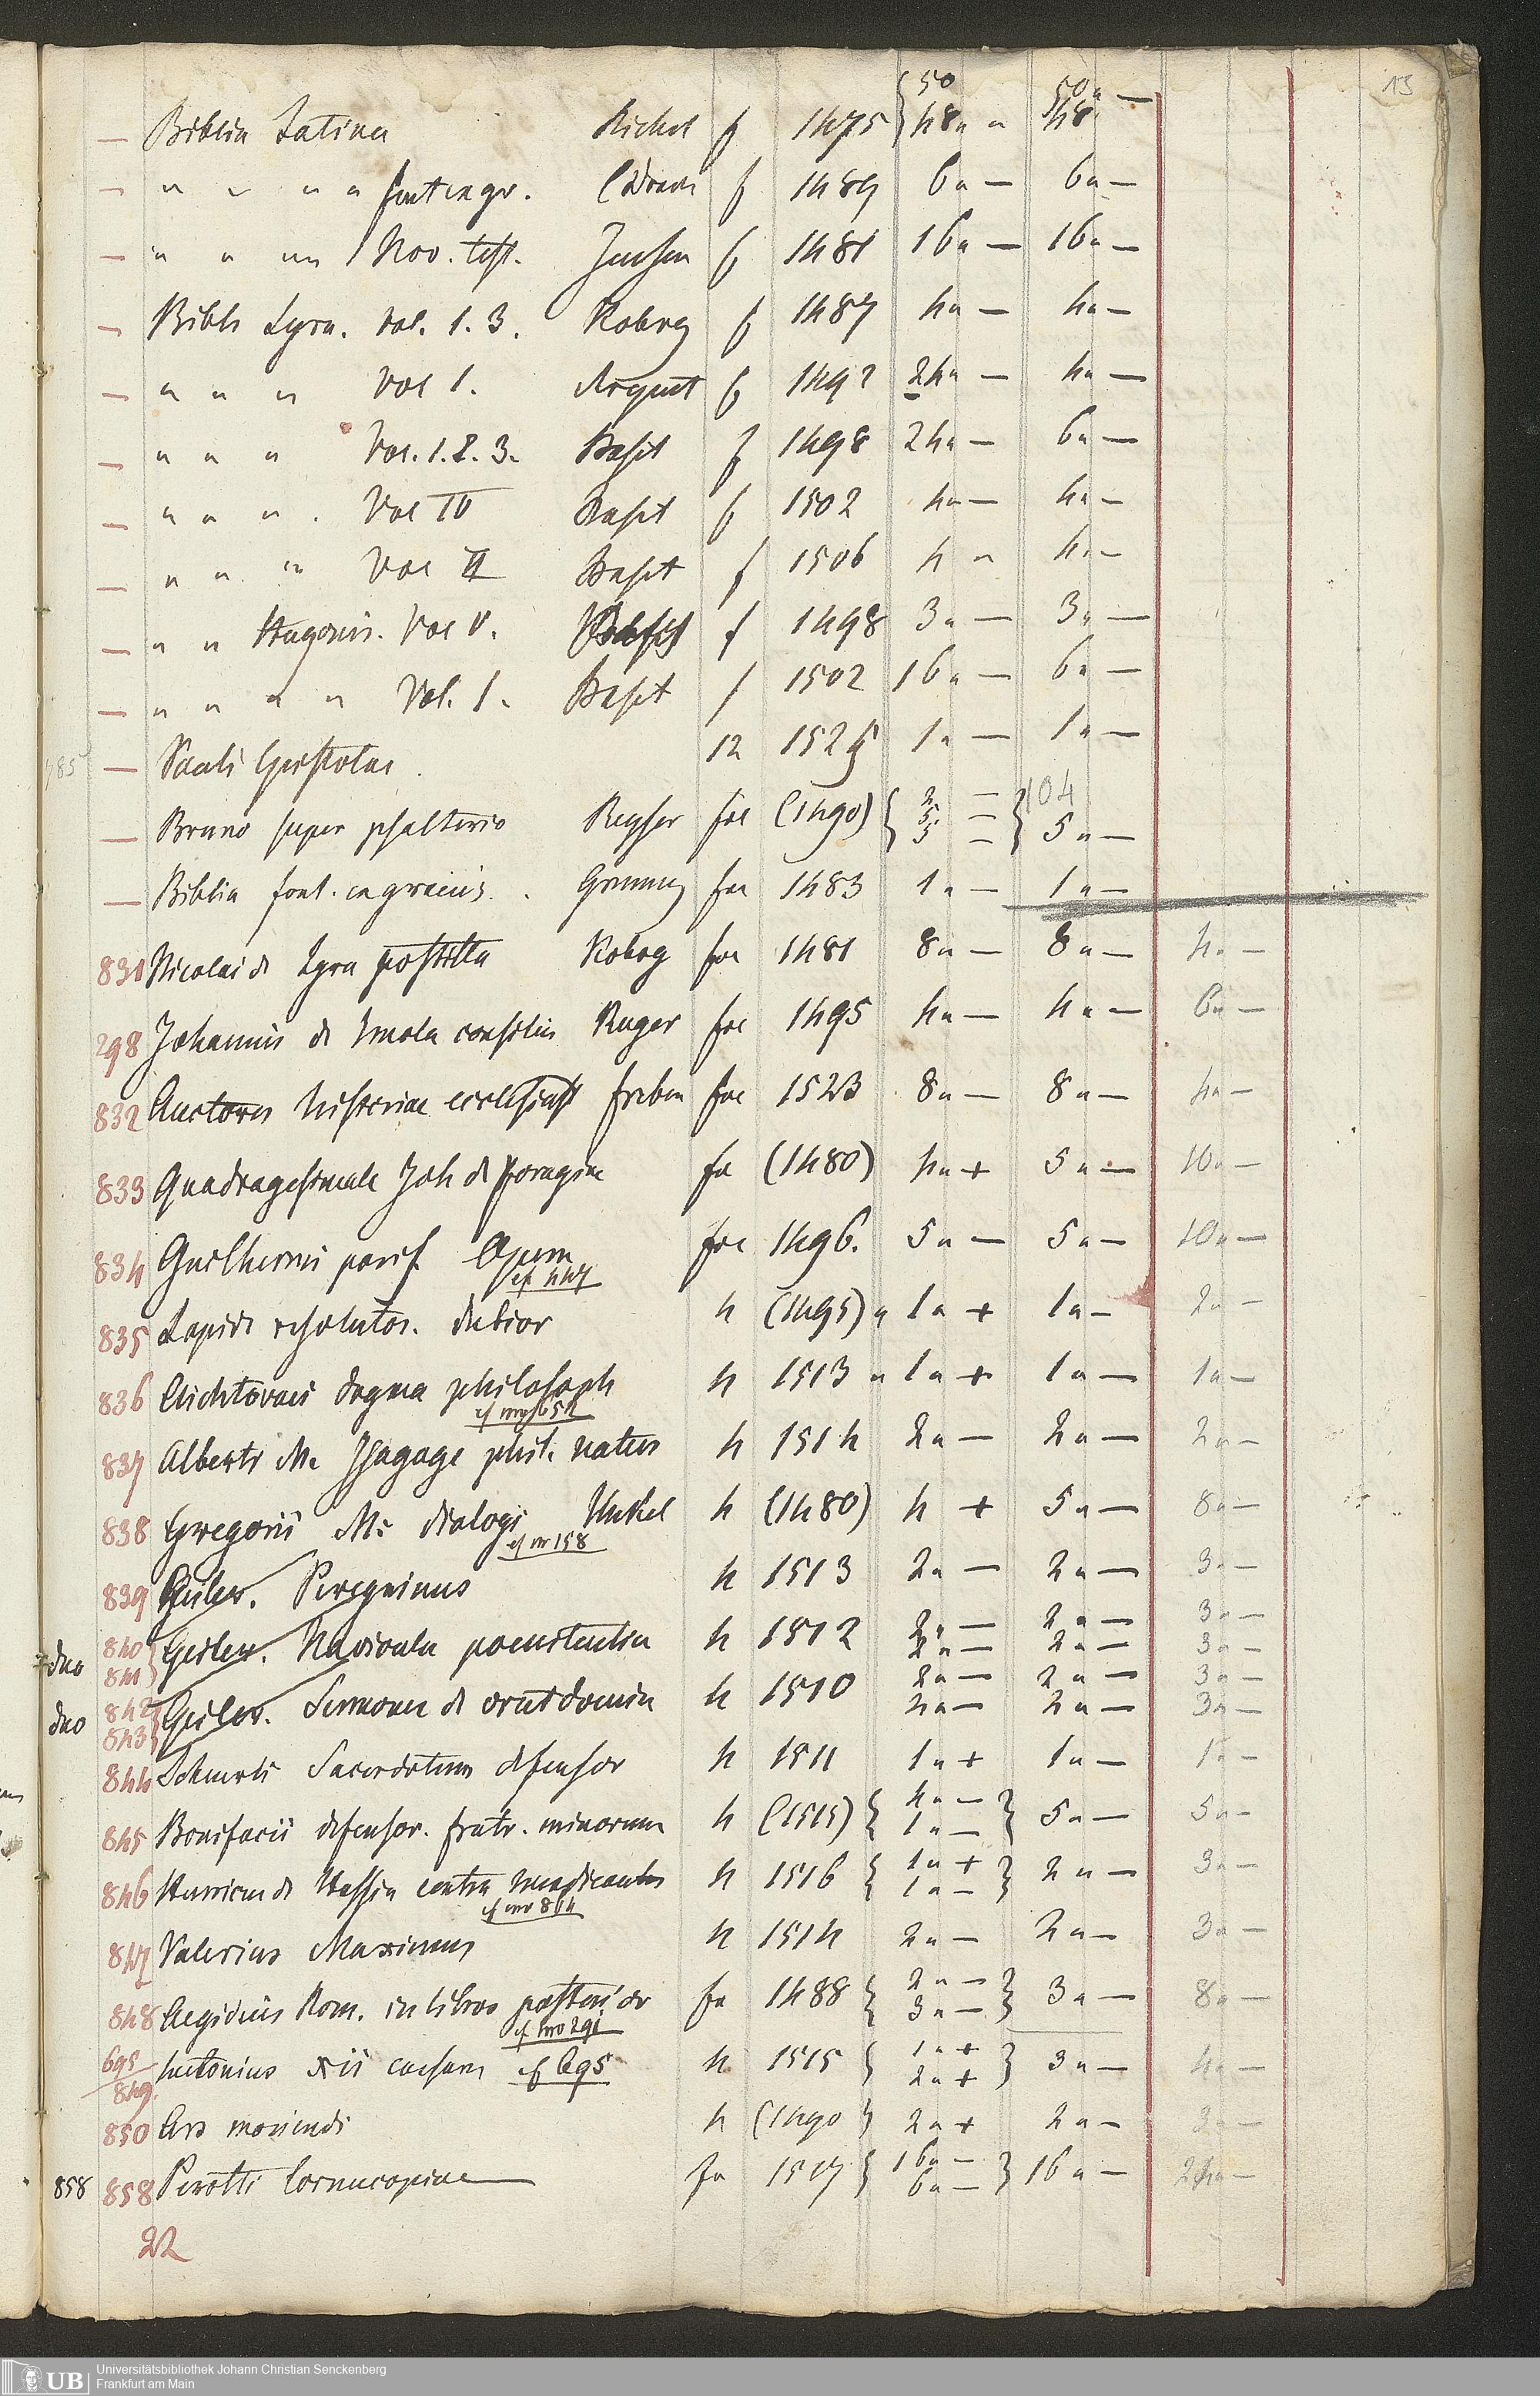 13
— Biblia Latina Richel f 1475 { 50 48 „ „ 50 „ — 48
— „ „ „ „ font. in gr. f 1489 6 „ — 6 „ —
— „ „ „ „ Nov. test. Jenson f 1481 16 „ — 16 „ —
— Bibli Lyra. Vol. 1. 3. Koberg f 1487 4 „ — 4 „ —
— „ „ „ Vol 1. Argent f 1492 24 „ — 4 „ —
— „ „ „ Vol. 1. 2. 3. Basil f 1498 24 „ — 6 „ —
— „ „ „ . Vol IV Basil f 1502 4 „ — 4 „ —
— „ „ „ Vol VI Basil f 1506 4 „ 4 „ —
— „ „ Hugonis. Vol V. f 1498 3 „ — 3 „ —
— „ „ „ „ Vol. 1. Basil f 1502 16 „ — 6 „ —
— Pauli Epistolae . 12 1525 1 „ — 1 „ —
— Bruno super psalterio Reyser fol (1490) { 5 — } 104 5 „ —
— Biblia font. in graecis. Gruning fol 1483 1 „ — 1 „ —
831 Nicolai de Lyra postilla Kobrg fol 1481 8 „ — 8 „ — 4 „ —
298 Johannis de Imola consilia Ruger fol 1495 4 „ — 4 „ — 6 „ —
832 Auctores historiae ecclesiast Froben fol 1523 8 „ — 8 „ — 4 „ —
833 Quadragesimale Joh de Voragine fol (1480) 4 „ + 5 „ — 10 „ —
834 Guilhermi paris. Opera fol 1496. 5 „ — 5 „ — 10 „ —
cf 447
835 Lapide resolutor. dubior 4 (1495) „ 1 „ + 1 „ — 2 „ —
836 Clichtovaei dogma philosoph 4 1513 „ 1 „ + 1 „ — 1 „ —
cf nro 654
837 Alberti M. Isagoge phil. natur 4 1514 2 „ — 2 „ — 2 „ —
838 Gregorii M. dialogi Unkel 4 (1480) 4 + 5 „ — 8 „ —
cf nr 158
839 Geiler. Peregrinus 4 1513 2 „ — 2 „ — 3 „ —
duo 840 841 } Geiler. Navicula poenitentia 4 1512 2 „ — 2 „ — 3 „ —
2 „ — 2 „ — 3 „ —
duo 842 843 } Geiler. Sermones de orat domin 4 1510 2 „ — 2 „ — 3 „ —
2 „ — 2 „ — 3 „ —
844 Sacerdotum defensor 4 1511 1 „ + 1 „ — 1 „ —
845 Bonifacii defensor. fratr. minorum 4 (1515) { 4 „ — 1 „ — } 5 „ — 5 „ —
846 Henricus de Hassia contra mendicantes 4 1516 { 1 „ + 1 „ — } 2 „ — 3 „ —
cf nro 864
847 Valerius Maximus 4 1514 2 „ — 2 „ — 3 „ —
848 Aegidius Rom. in libros posterior fol 1488 { 2 „ — 3 „ — } 3 „ — 8 „ —
cf nro 291
695 849. Suetonius XII caesares cf 695 4 1515 } 1 „ + 2 „ + } 3 „ — 4 „ —
850 Ars moriendi 4 (1490) 2 „ + 2 „ — 3 „ —
858 858 Perotti Cornucopiae — fo 1517 { 16 „ — 6 „ — } 16 „ — 24 „ —
22
UB Universitätsbibliothek Johann Christian Senckenberg
Frankfurt am Main